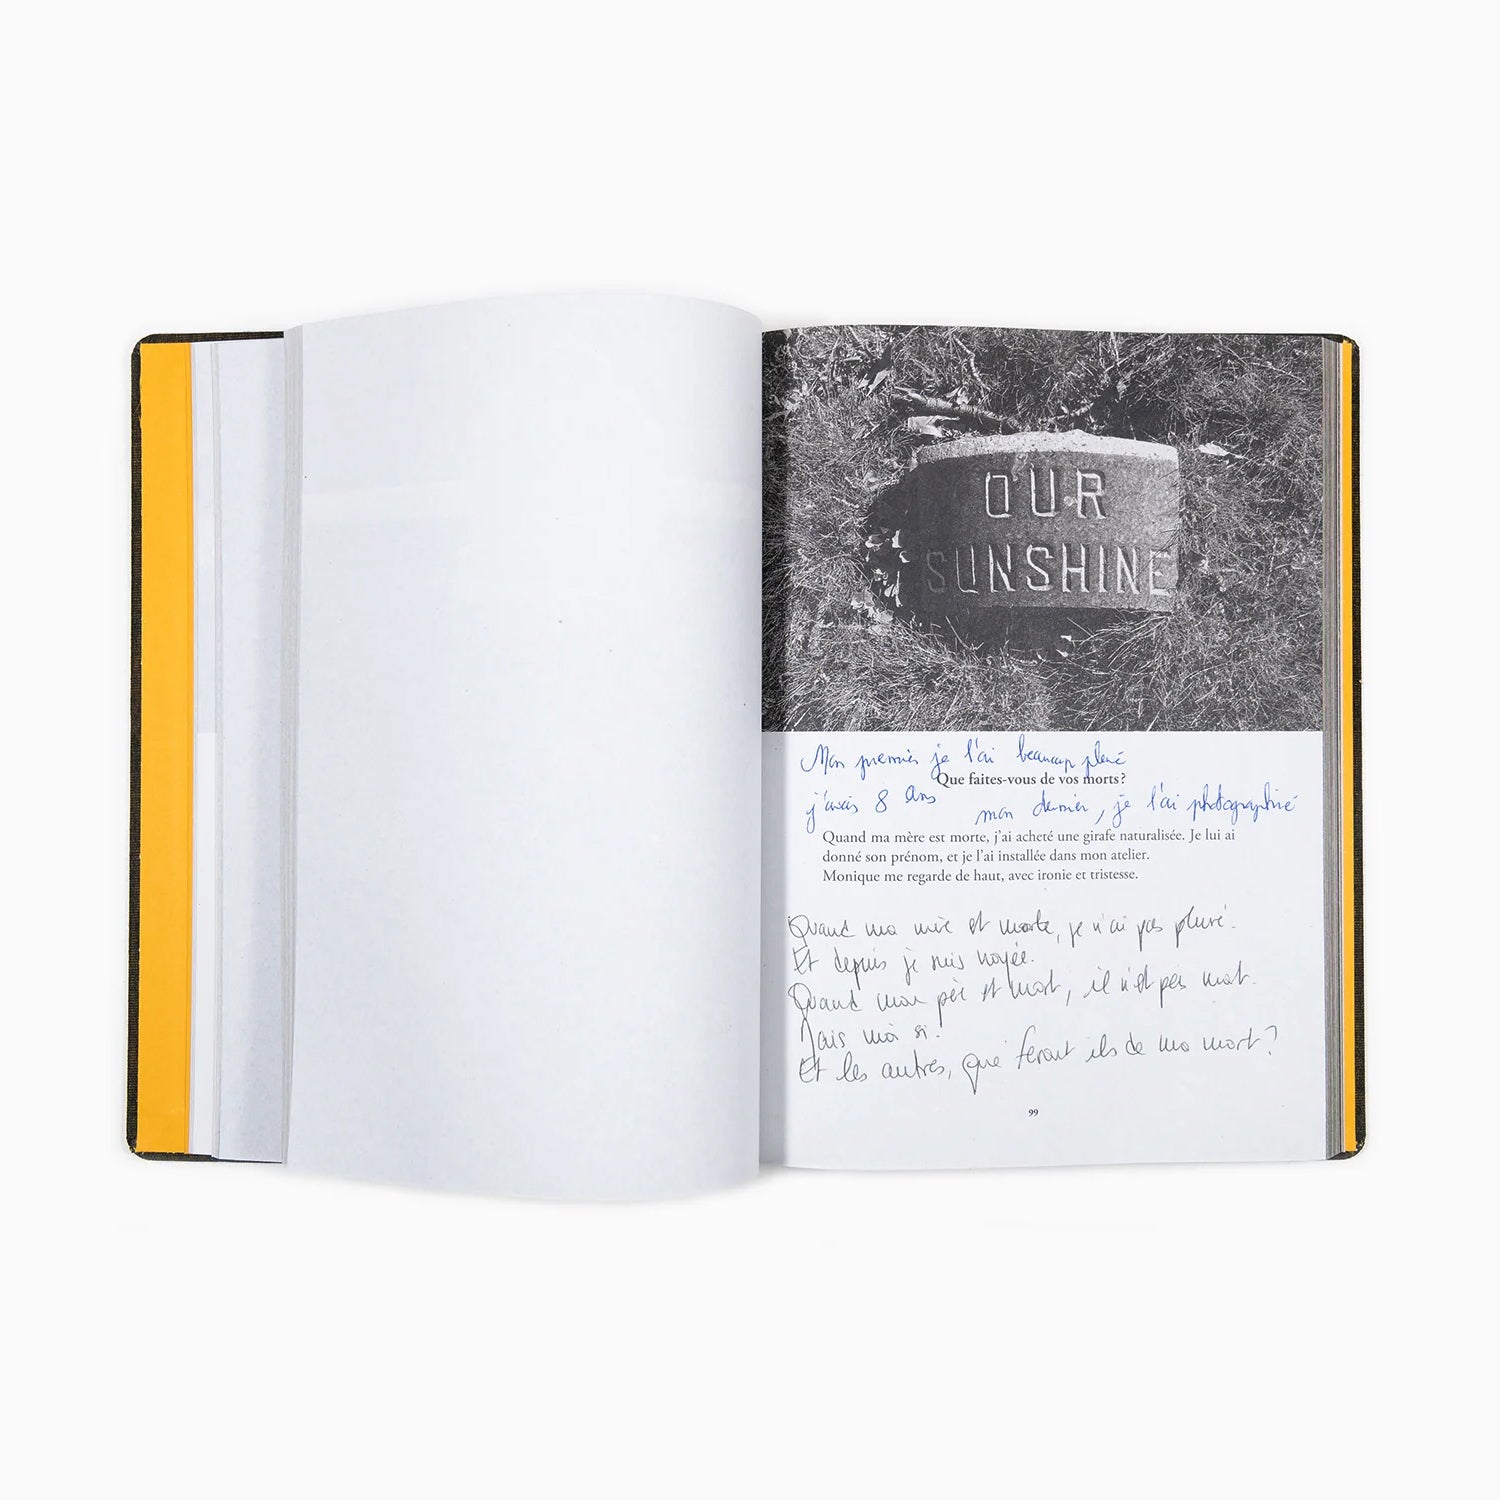 OUR
SUNSHINE
Mon premier je l'ai beaucoup pleuré
Que faites-vous de vos morts?
j'avais 8 ans mon dernier, je l'ai photographié
Quand ma mère est morte, j'ai acheté une girafe naturalisée. Je lui ai
donné son prénom, et je l'ai installée dans mon atelier.
Monique me regarde de haut, avec ironie et tristesse.
Quand ma mère est morte, je n'ai pas pleuré.
Et depuis je suis noyée.
Quand mon père est mort, il n'est pas mort.
Mais moi si.
Et les autres, que feront ils de ma mort?
99